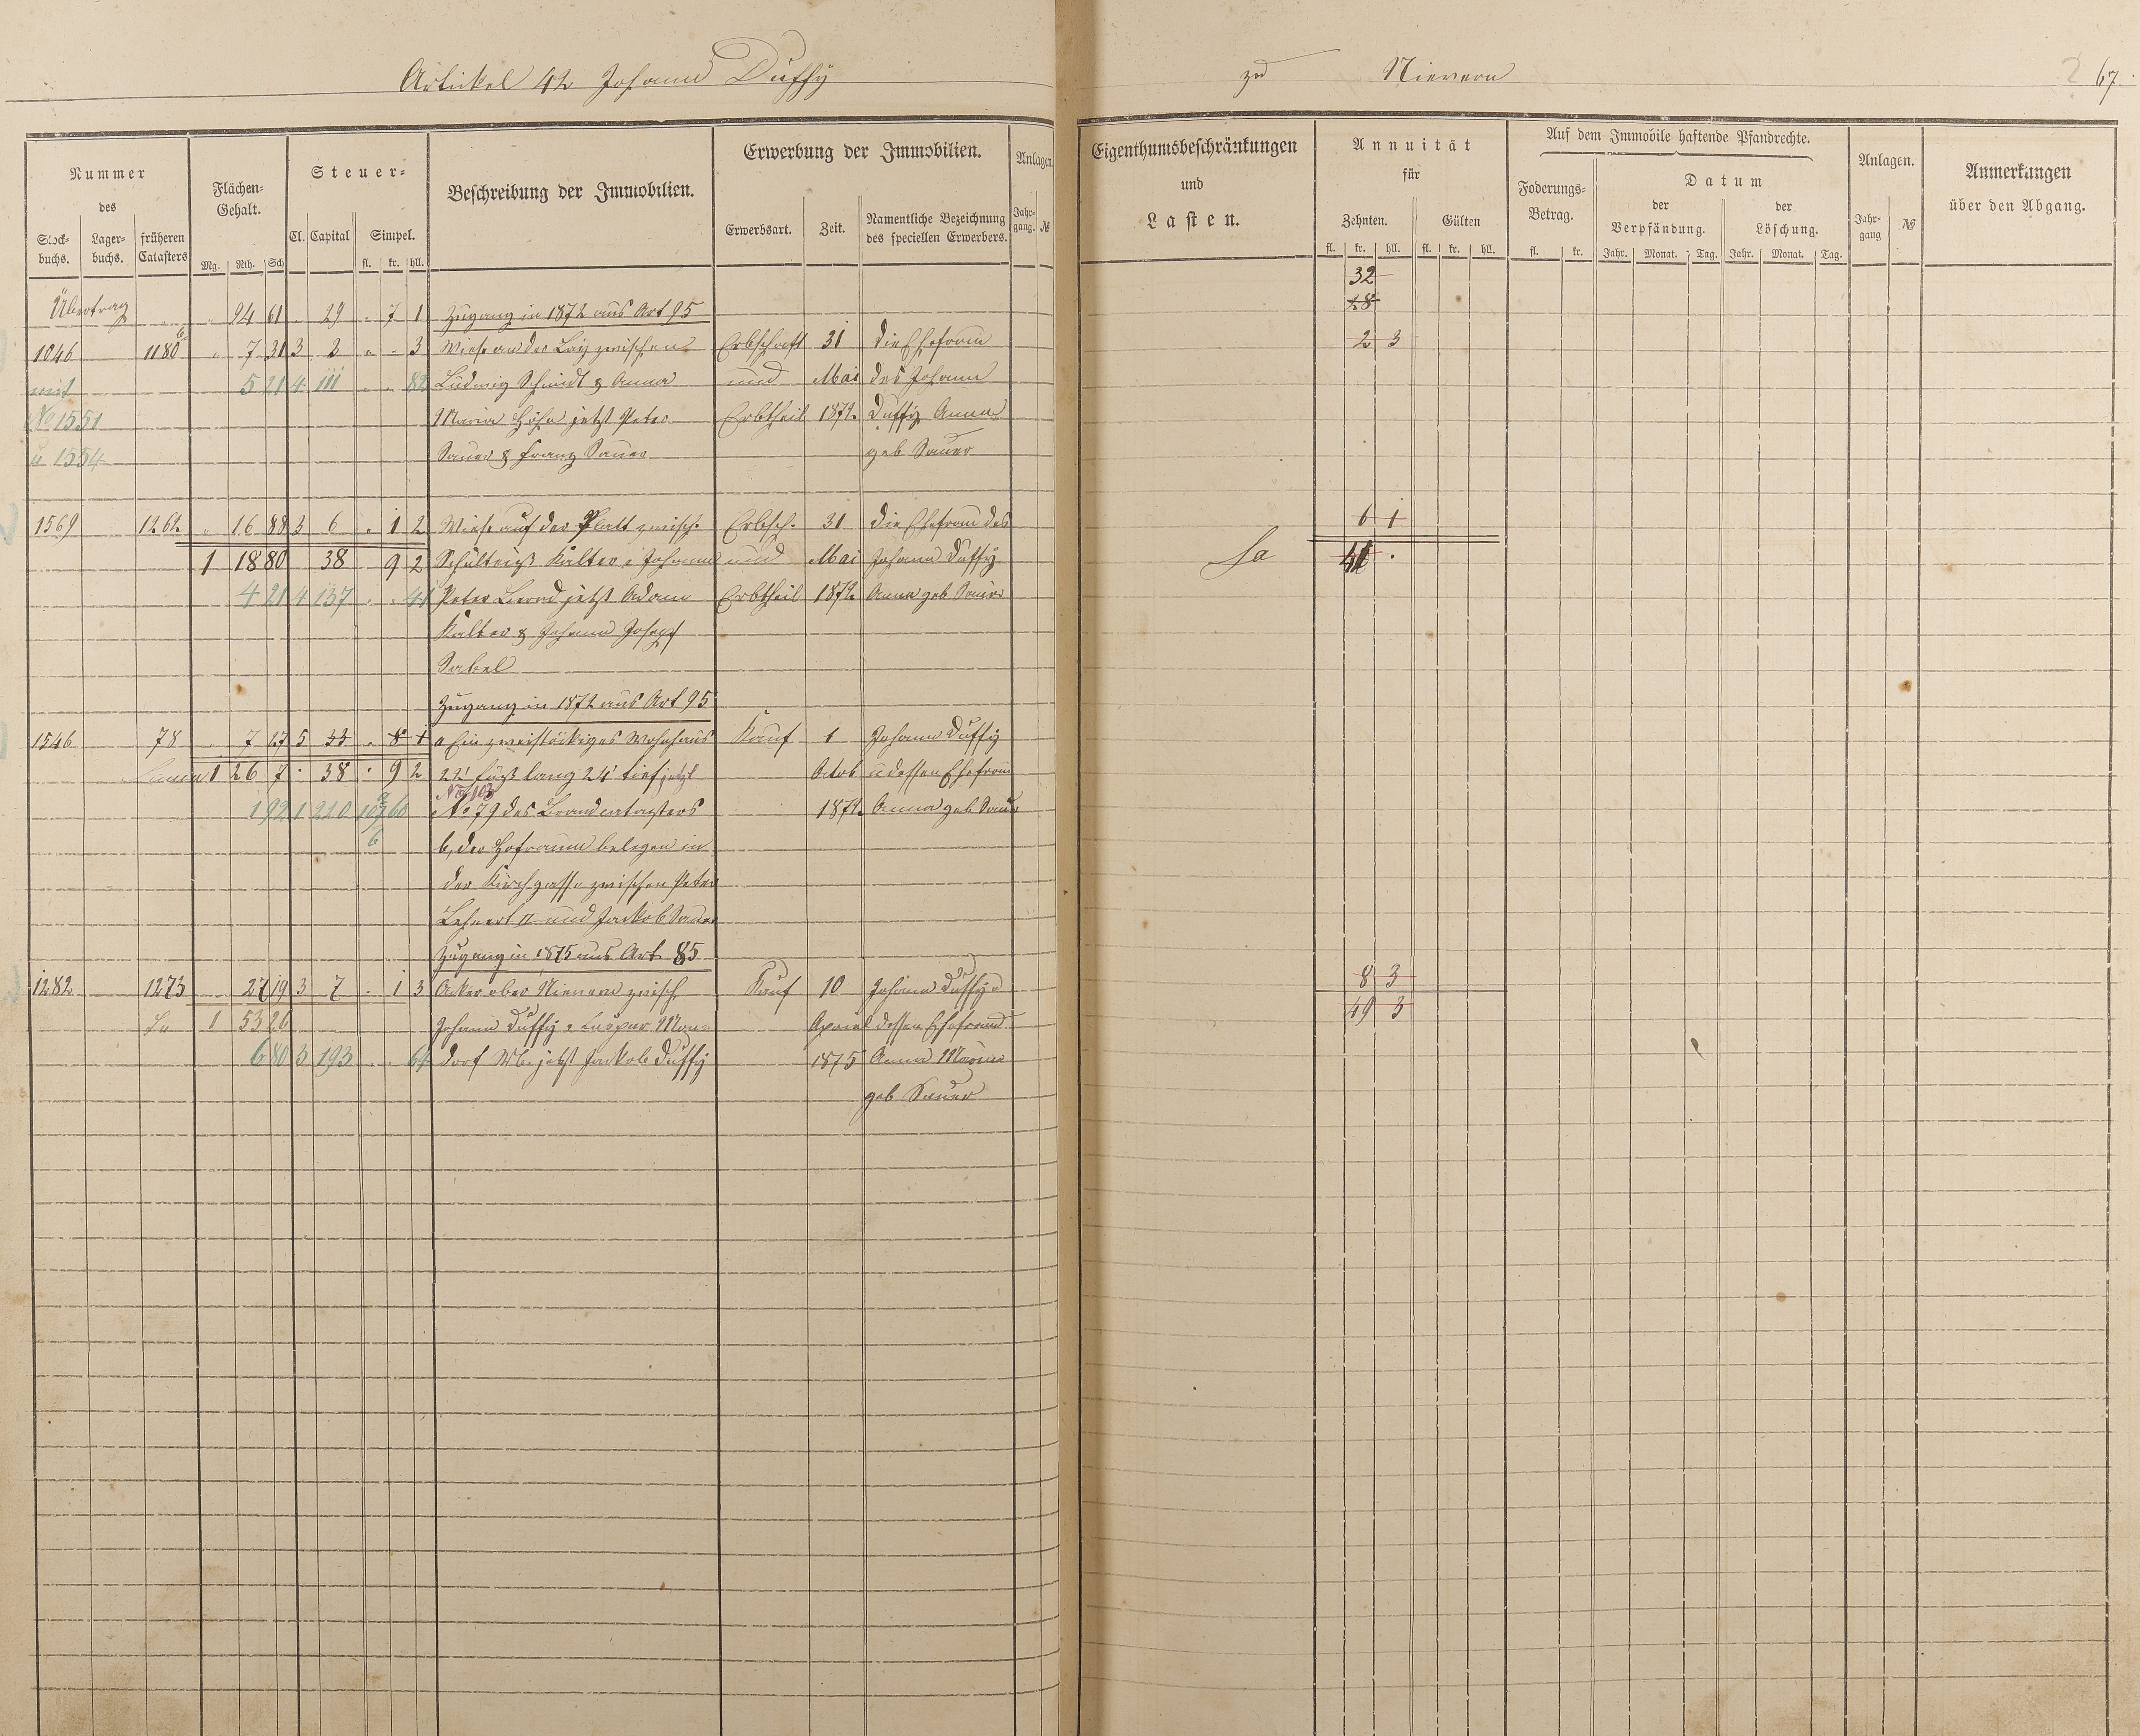 Artikel 42 Johann Duffÿ zu Nievern 67.
Nummer
des
Stock-
buchs.
Lager-
buchs.
früheren
Catasters
Flächen-
Gehalt.
Mg. Rth. Sch
Steuer-
Cl. Capital Simpel.
fl. kr. hll.
Beschreibung der Immobilien.
Erwerbung der Immobilien.
Erwerbsart. Zeit.
Namentliche Bezeichnung
des speciellen Erwerbers.
Anlagen.
Jahr-
gang. №
Eigenthumsbeschränkungen
und
Lasten.
Annuität
für
Zehnten. Gülten
fl. kr. hll. fl. kr. hll.
Auf dem Immobile haftende Pfandrechte.
Foderungs-
Betrag.
fl. kr.
Datum
der
Verpfändung.
der
Löschung.
Jahr. Monat. Tag. Jahr. Monat. Tag.
Anlagen.
Jahr-
gang №
Anmerkungen
über den Abgang.
32
Übertrag 94 61 29 7 1 Zugang in 1872 aus Art 95 28
1046 1180 b 7 31 3 3 3 Wiese an der Laÿ zwischen Erbschaft 31 die Ehefrau 2 3
mit 5 21 4 111 82 Ludwig Schmidt & Anna und Mai des Johann
No 1551 Maria Höhn jetzt Peter Erbtheil 1872 Duffÿ Anna
u 1554 Sauer & Franz Sauer geb Sauer
1569 1262 16 88 3 6 1 2 Wiese auf der Platt zwisch. Erbsch. 31 die Ehefrau des 6 1
1 18 80 38 9 2 Schultheiß Kalter & Johann und Mai Johann Duffÿ Sa 41
4 21 4 137 41 Peter jetzt Adam Erbtheil 1872 Anna geb Sauer
Kalter & Johann Joseph
Sabel
Zugang in 1872 aus Art 95
1546 78 7 27 5 33 8 1 a Ein zweistöckiges Wohnhaus Kauf 1 Johann Duffÿ
1 26 7 38 9 2 22' Fuß lang 24' tief jetzt Octob u dessen Ehefrau
No 103
1 92 1 210 60 No 79 des Brandcatasters 1872 Anna geb Sauer
b, der Hofraum belegen in
der Kirchgasse zwischen Peter
Lehnert II und Jackob Sauer
Zugang in 1875 aus Art. 85
1282 1273 27 19 3 7 1 3 Acker ober Nievern zwisch Kauf 10 Johann Duffÿ u 8 3
Sa 1 53 26 Johann Duffÿ & Caspar Mon- Apriel dessen Ehefrau 49 3
6 80 3 193 64 dorf Wb. jetzt Jackob Duffÿ 1875 Anna Maria
geb Sauer